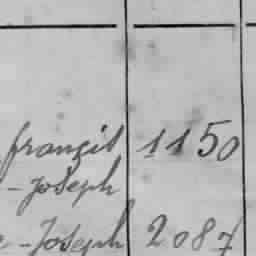 françois 1150
- Joseph
- Joseph 2087